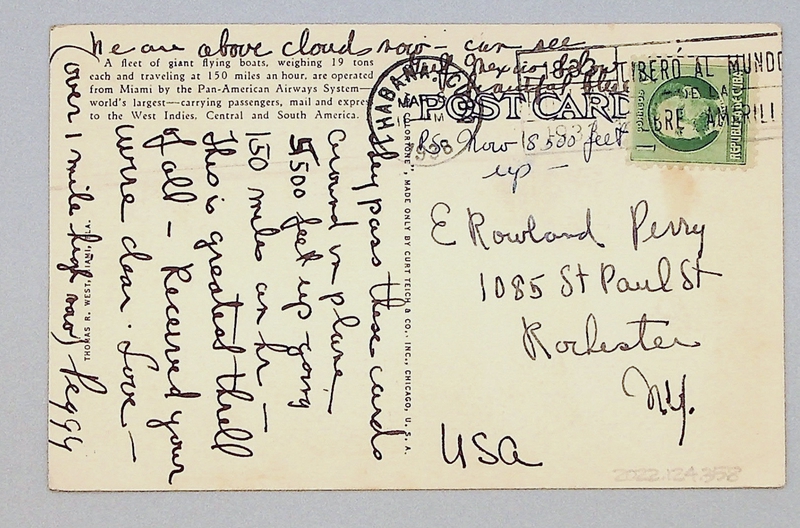 We are above clouds now - can see
Gulf Mexico & boat
beautiful blue
A fleet of giant flying boats, weighing 19 tons
each and traveling at 150 miles an hour, are operated
from Miami by the Pan-American Airways System—
world's largest—carrying passengers, mail and express
to the West Indies, Central and South America.
They pass these cards
around in plane -
5,500 feet up going
150 miles an hr -
This is greatest thrill
of all - Received your
wire dear. Love -
Peggy
(over 1 mile high now)
THOMAS R. WEST, MIAMI, FLA.
COLORTONE", MADE ONLY BY CURT TEICH & CO., INC., CHICAGO, U. S. A.
POST CARD
HABANA, CU
MA
M
1938
LIBERO AL MUNDO
DE LA
BRE AMARILL
REPUBLICA DE CUBA
PS Now 8500 feet
up -
E Rowland Perry
1085 St Paul St
Rochester
N.Y.
USA
2022.124.358